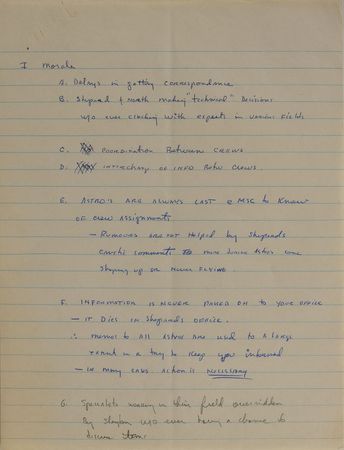 I Morale
A. Delays in getting correspondence
B. Shepard & North making "technical" decisions
w/o ever checking with experts in various fields
C. Coordination Between Crews
D. interchang of info Betw Crews
E. ASTRO'S ARE ALWAYS LAST @ MSC to Know
OF Crew Assignments
— Rumours are not Helped by Shepards
comments to more junior Astros
shaping up or never flying
F. INFORMATION IS NEVER PASSED ON to your office
— IT Dies in Shepards OFFICE.
∴ memos to ALL Astros are used to a large
extent in a try to Keep you informed
— IN many cases Action is necessary
G. Specialists working in their field overridden
By Slayton w/o ever having a chance to
discuss items